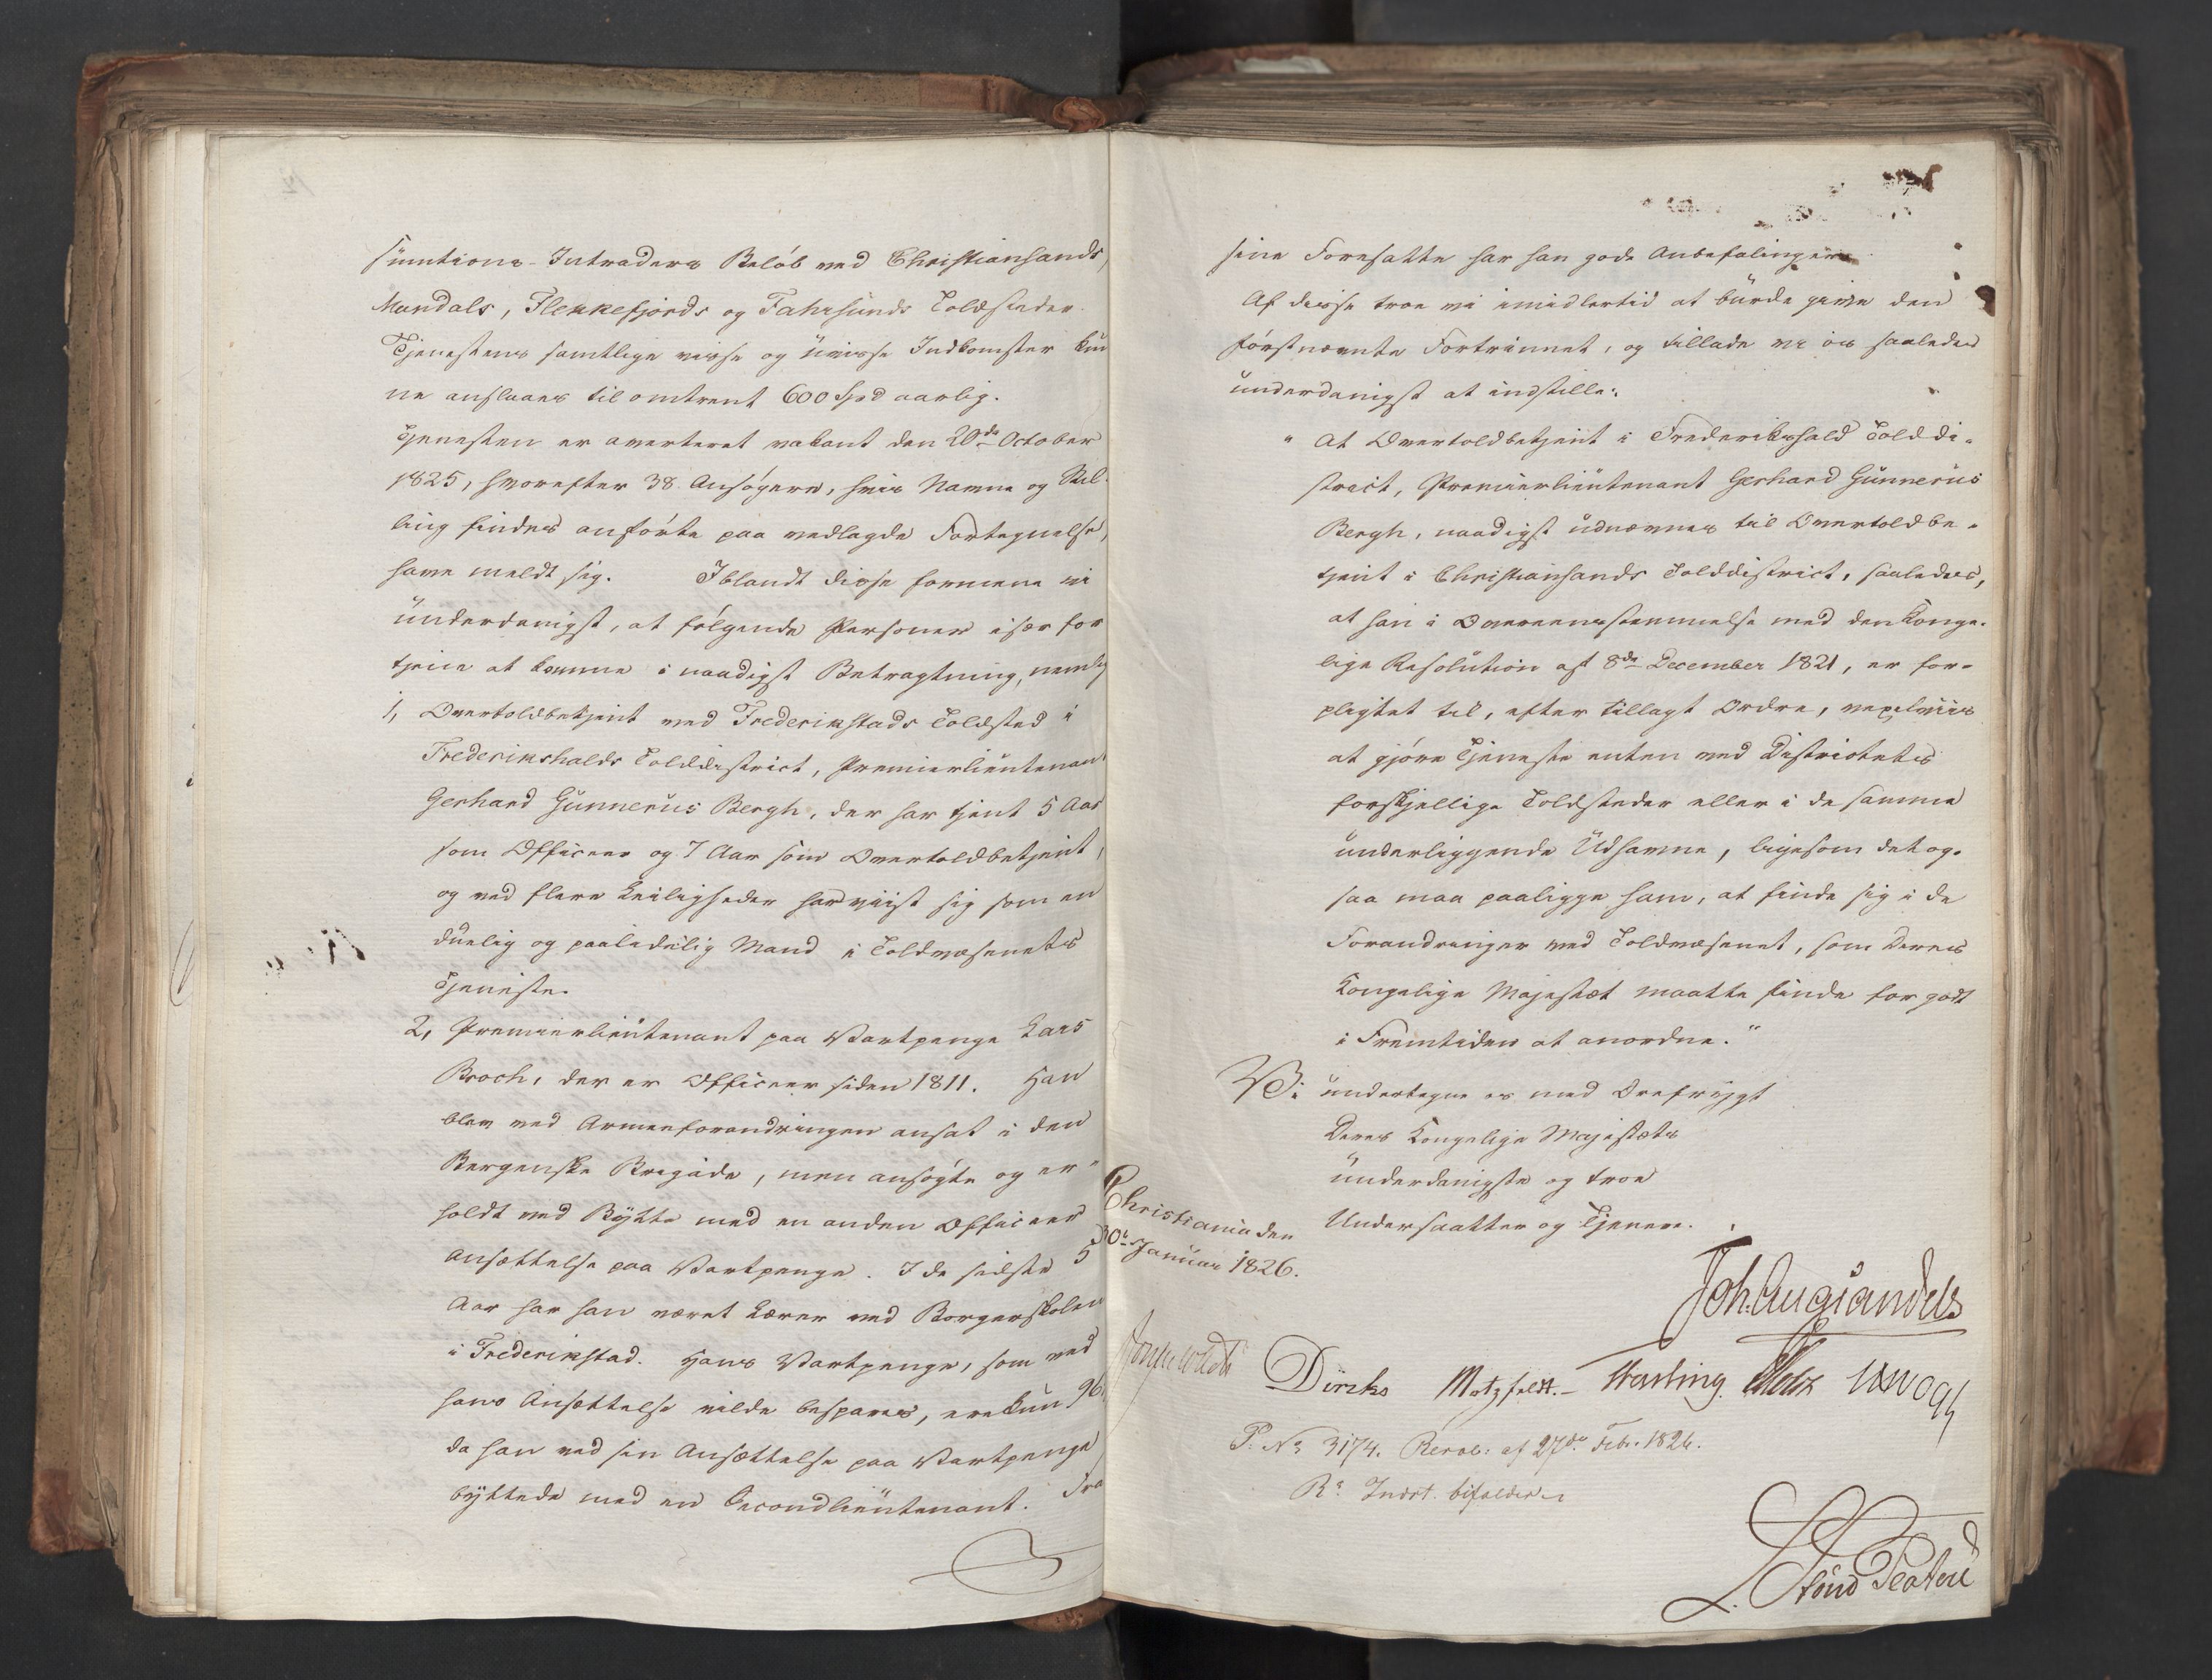 sumtions-Intraders Beløb ved Christiansands,
Mandals, Flekkefjords og Fahrsunds Toldsteder.
Tjenestens samtlige visse og uvisse Indkomster kun
ne anslaaes til omtrent 600 Spd aarlig.
Tjenesten er averteret vakant den 20de October
1825, hvorefter 38 Ansøgere, hvis Navne og Stil-
ling findes anførte paa vedlagde Fortegnelse,
have meldt sig. Iblandt disse formene vi
underdanigst, at følgende Personer især for
tjene at komme i naadigst Betragtning, nemlig
1, Overtoldbetjent ved Frederikstads Toldsted i
Frederikshalds Tolddistrict, Premierlieutenant
Gerhard Gunnerus Bergh, der har tjent 5 Aar
som Officeer og 7 Aar som Overtoldbetjent,
og ved flere Leiligheder har viist sig som en
duelig og paalidelig Mand i Toldvæsenets
Tjeneste.
2, Premierlieutenant paa Vartpenge Lars
Broch, der er Officeer siden 1811. Han
blev ved Armeeforandringen ansat i den
Bergenske Brigade, men ansøgte og er-
holdt ved Bytte med en anden Officeer
Ansættelse paa Vartpenge. I de sidste 5
Aar har han været Lærer ved Borgerskolen
i Frederikstad. Hans Vartpenge, som ved
hans Ansættelse vilde bespares, ere kun 96
da han ved sin Ansættelse paa Vartpenge
byttede med en Secondlieutenant. Fra
sine Foresatte har han gode Anbefalinger.
Af disse troe vi imidlertid at burde give den
førstnævnte Fortrinnet, og tillade vi os saaledes
underdanigst at indstille:
" At Overtoldbetjent i Frederikshald Tolddi-
strict, Premierlieutenant Gerhard Gunnerus
Bergh, naadigst udnævnes til Overtoldbe-
tjent i Christiansands Tolddistrict, saaledes,
at han i Overeensstemmelse med den Konge-
lige Resolution af 8de December 1821, er for-
pligtet til, efter tillagt Ordre, vexelviis
at gjøre Tjeneste enten ved Districtets
forskjellige Toldsteder eller i de samme
underliggende Udhavne, ligesom det og-
saa maa paaligge ham, at finde sig i de
Forandringer ved Toldvæsenet, som Deres
Kongelige Majestæt maatte finde for godt
i Fremtiden at anordne."
Vi undertegne os med Ærefrygt
Deres Kongelige Majestæts
underdanigste og troe
Undersaatter og Tjenere.
Christiania den
30te Januar 1826.
Joh. Aug Sandels
Diriks Motzfeldt.- Hasting JHVogt
P. No 3174. Resol: af 27de Febr. 1826.
Rs Indst. bifaldes